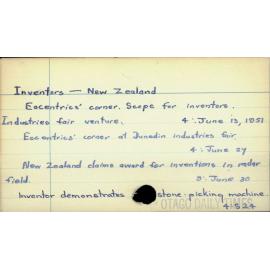 Inventors — New Zealand
Eccentrics' corner. Scope for inventors.
Industries fair venture. 4: June 13, 1951
Eccentrics' corner at Dunedin industries fair.
4: June 27
New Zealand claims award for inventions in radar
field. 5: June 30
Inventor demonstrates stone-picking machine
OTAGO DAILY TIMES